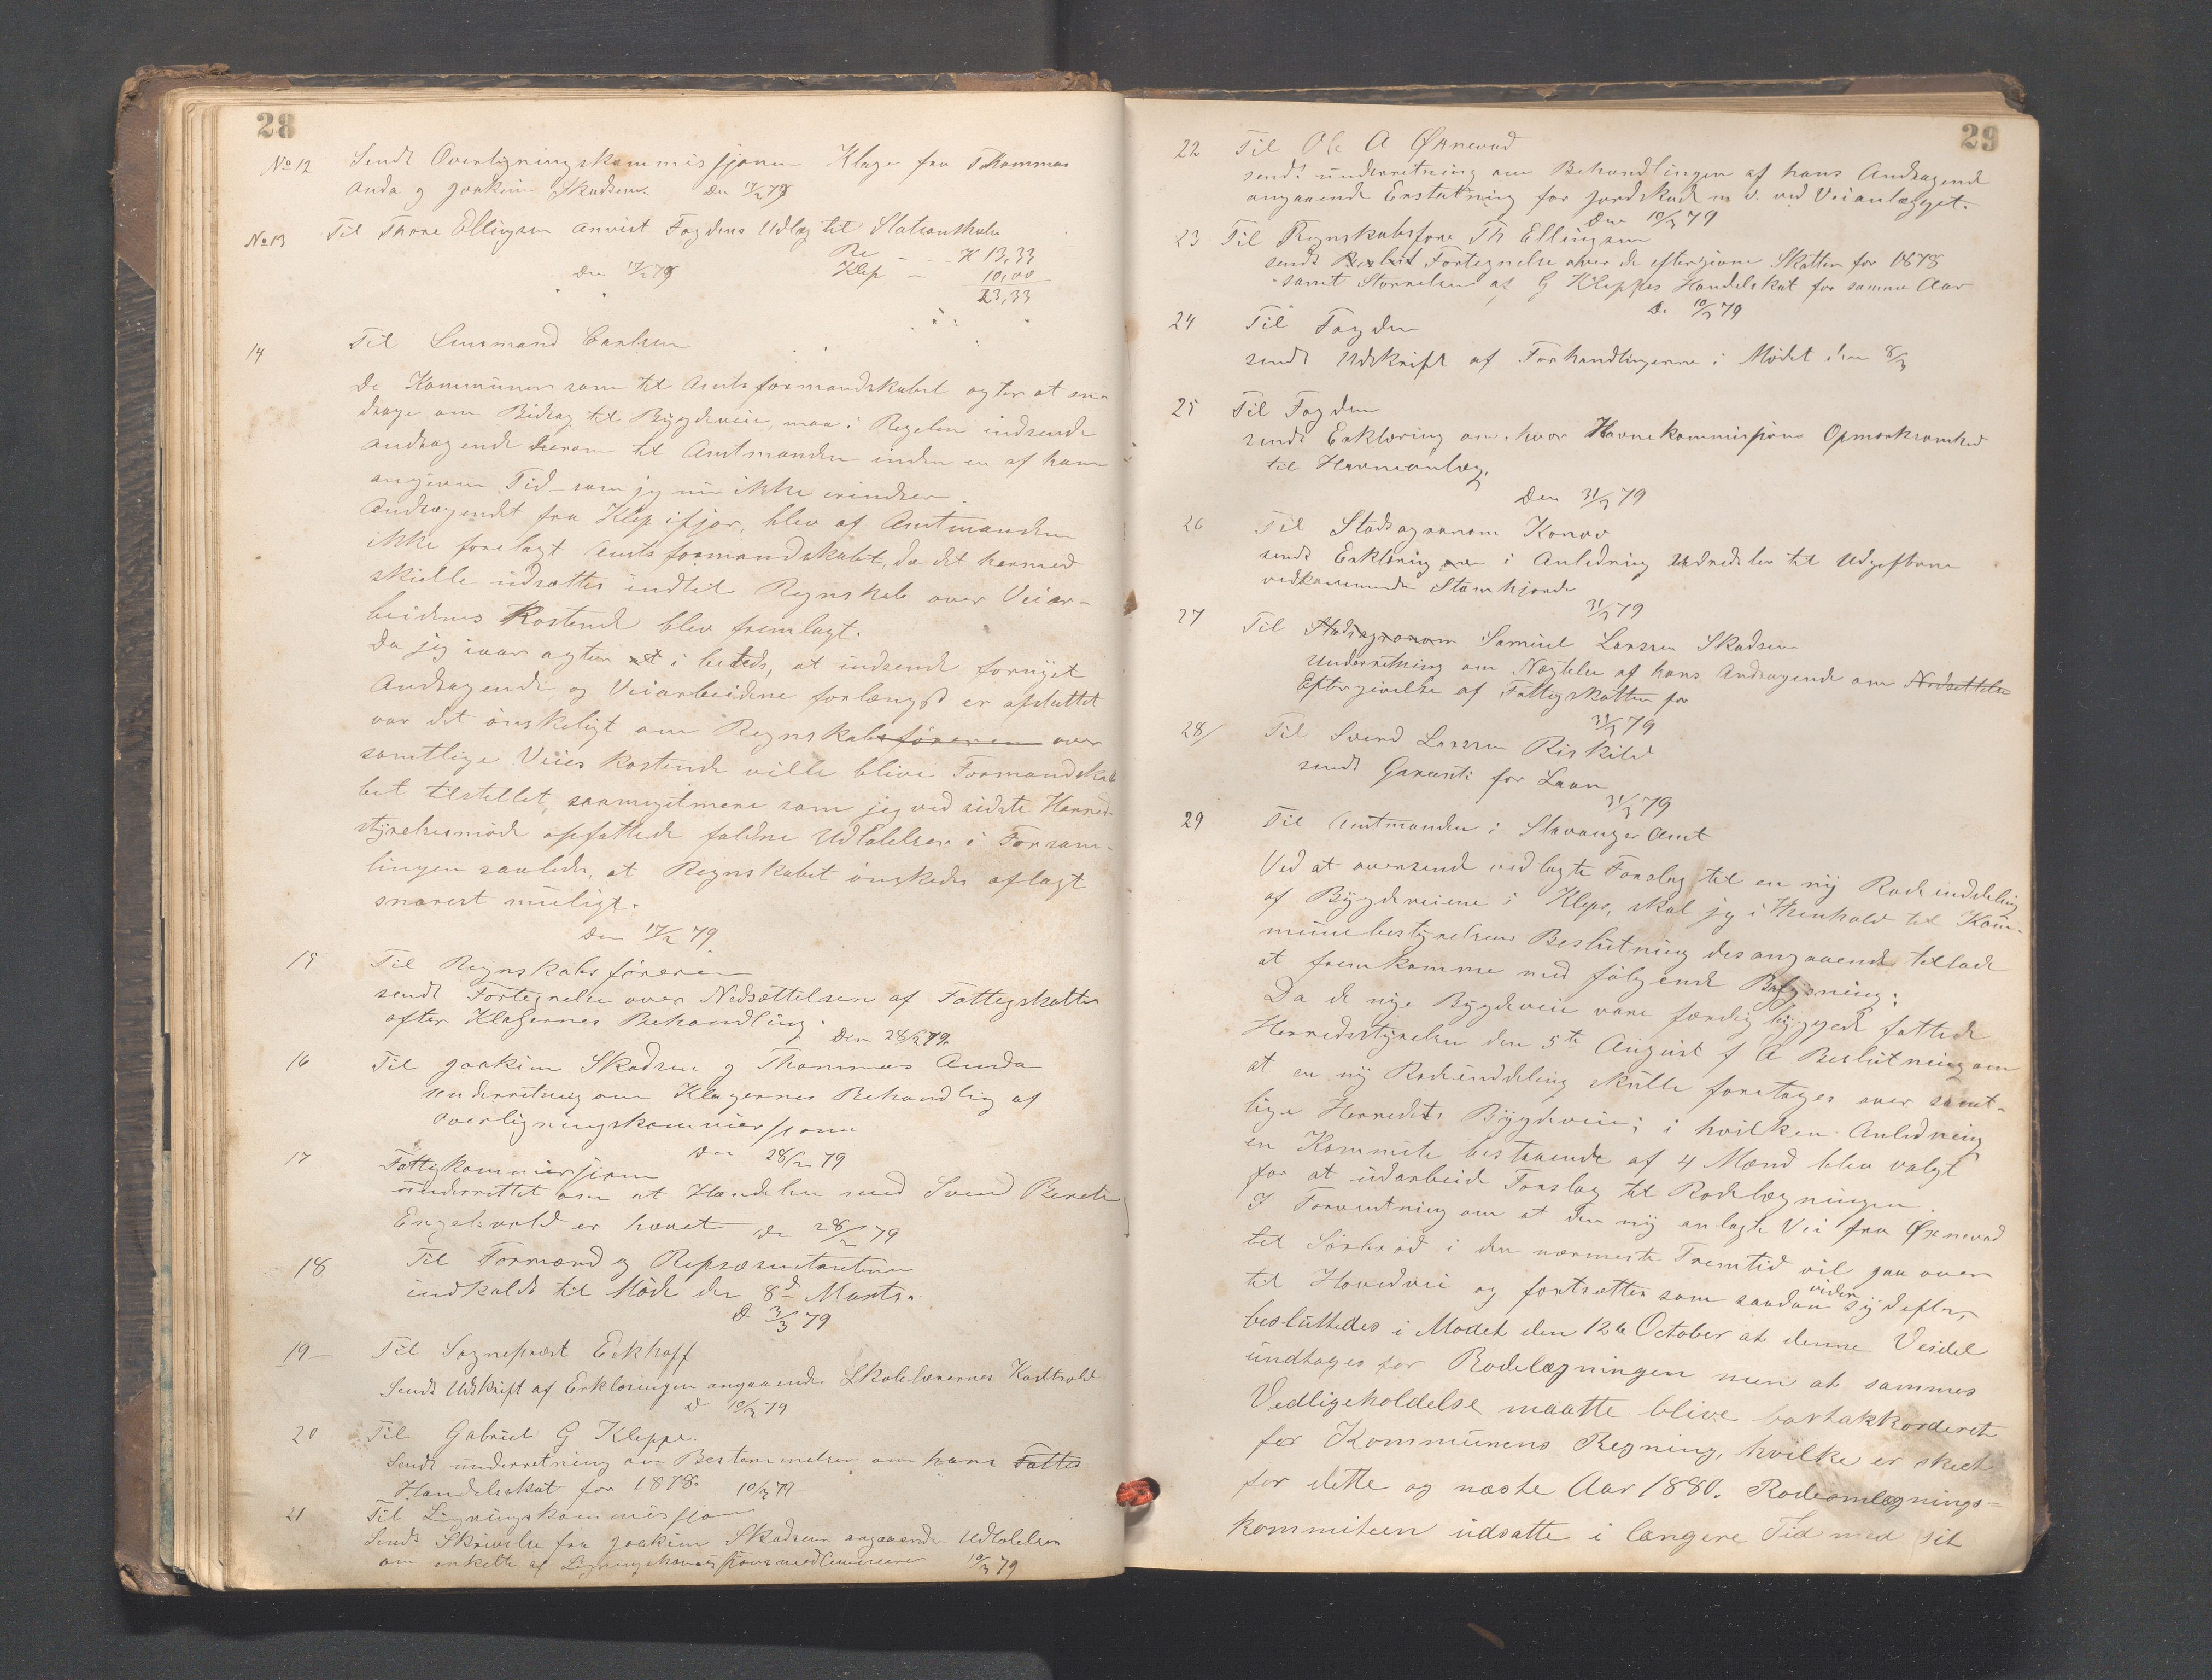 28
No 12 Sendt Overligningskommissjonen Klager fra Thommas
Anda og Joakim Skadsem. Den 17/2 79
No 13 Til Thore Ellingsen anvist Fogdens Udlæg til Stationsholm
Re - - K 13,33
den 17/2 79 Klep - 10,00
23,33
14 Til Lensmand Carlsen
De Kommuner som til Amtsformandskabet agter at an-
drage om Bidrag til Bygdeveie, maa i Regelen indsende
Andragende herom til Amtmanden inden en af ham
angiven Tid – som jeg nu ikke erindrer.
Andragendet fra Klep ifjor, blev af Amtmanden
ikke forelagt Amtsformandskabet, da det hermed
skulle udsættes indtil Regnskab over Veiar-
beidernes Kostende blev fremlagt.
Da jeg iaar agter at i betids, at indsende fornyet
Andragende og Veiarbeidene forlængst er afsluttet
var det ønskeligt om Regnskabsføreren over
samtlige Veies kostende ville blive Formandska-
bet tilstillet, saameget mere som jeg ved sidste Herred-
styrelsesmøde opfattede faldne Udtalelser i Forsam-
lingen saaledes, at Regnskabet ønskedes aflagt
snarest muligt.
den 17/2 79
15 Til Regnskabsføreren
sendt Fortegnelse over Nedsættelsen af Fattigskatten
efter Klagernes Behandling. Den 28/2 79.
16 Til Joakim Skadsem og Thommas Anda
underretning om Klagernes Behandlig af
Overligningskommissjonen
Den 28/2 79
17 Fattigkommissjonen
underrettet om at Handelen med Svend
Engelsvold er hævet den 28/2 79
18 Til Formænd og Repræsentanterne
indkaldt til Møde den 8d Marts.
D 3/3 79
19 – Til Sognepræst Eckhoff
Sendt Udskrift af Erklæringen angaaende Skolelærernes Kosthold
D 10/3 79
20 Til Gabriel G Kleppe.
Sendt underretning om Bestemmelsen om hans Fattig
Handelsskat for 1878. 10/3 79
21 Til Ligningskommissjon
Sendt Skrivelse fra Joakim Skadsem angaaende Udtalelsen
om enkelte af Ligningskommissjonsmedlemmerne 10/3 79
29
22 Til Ole A Ørnevad
sendt underretning om Behandlingen af hans Andragende
angaaende Erstatning for Jordskade m v. ved Veianlægget.
Den 10/3 79
23 Til Regnskabsfører Th Ellingsen
sendt Fortegnelse over de eftergivne Skatter for 1878
samt Størrelsen af G Kleppes Handelskat for samme Aar
D. 10/3 79
24 Til Fogden
sendt Udskrift af Forhandlingerne i Mødet den 8/3
25 Til Fogden
sendt Erklæring om hvor Havnekommissjons Opmærksomhed
til Havneanlæg.
Den 31/3 79
26 Til Stadsagronom Konow
sendt Erklæring om i Anledning Udredelsen til Udgifterne
vedkommende Stamhjorde
31/3 79
27 Til Stadsagronom Samuel Larssen Skadsem
Underretning om Nægtelse af hans Andragende om Nedsættelse
Eftergivelse af Fattigskatten for
31/3 79
28/ Til Svend Larssen Riskild
sendt Garanti for Laan
31/3 79
29 Til Amtmanden i Stavanger Amt
Ved at oversende vedlagte Forslag til en ny Rodeinddeling
af Bygdeveiene i Klep, skal jeg i Henhold til Kom-
munebestyrelsens Beslutning desangaaende tillade
at fremkomme med følgende Belysning:
Da de nye Bygdeveie vare færdig byggede fattede
Herredsstyrelsen den 5te August f A Beslutning om
at en ny Rodeinddeling skulle foretages over samt-
lige Herredets Bygdeveie; i hvilken Anledning
en Kommite bestaaende af 4 Mænd blev valgt
for at udarbeide Forslag til Rodelægningen.
I Forventning om at den ny anlagte Vei fra Ørnevad
til Sørbrød i den nærmeste Fremtid vil gaa over
til Hovedvei og fortsættes som saadan videre sydefter,
besluttedes i Mødet den 12te October at denne Veidel
undtages for Rodelægningen men at sammes
Vedligeholdelse maatte blive bortakkorderet
for Kommunens Regning, hvilke er skeet
for dette og næste Aar 1880. Rodeomlægnings-
kommiteen udsatte i længere Tid med sit